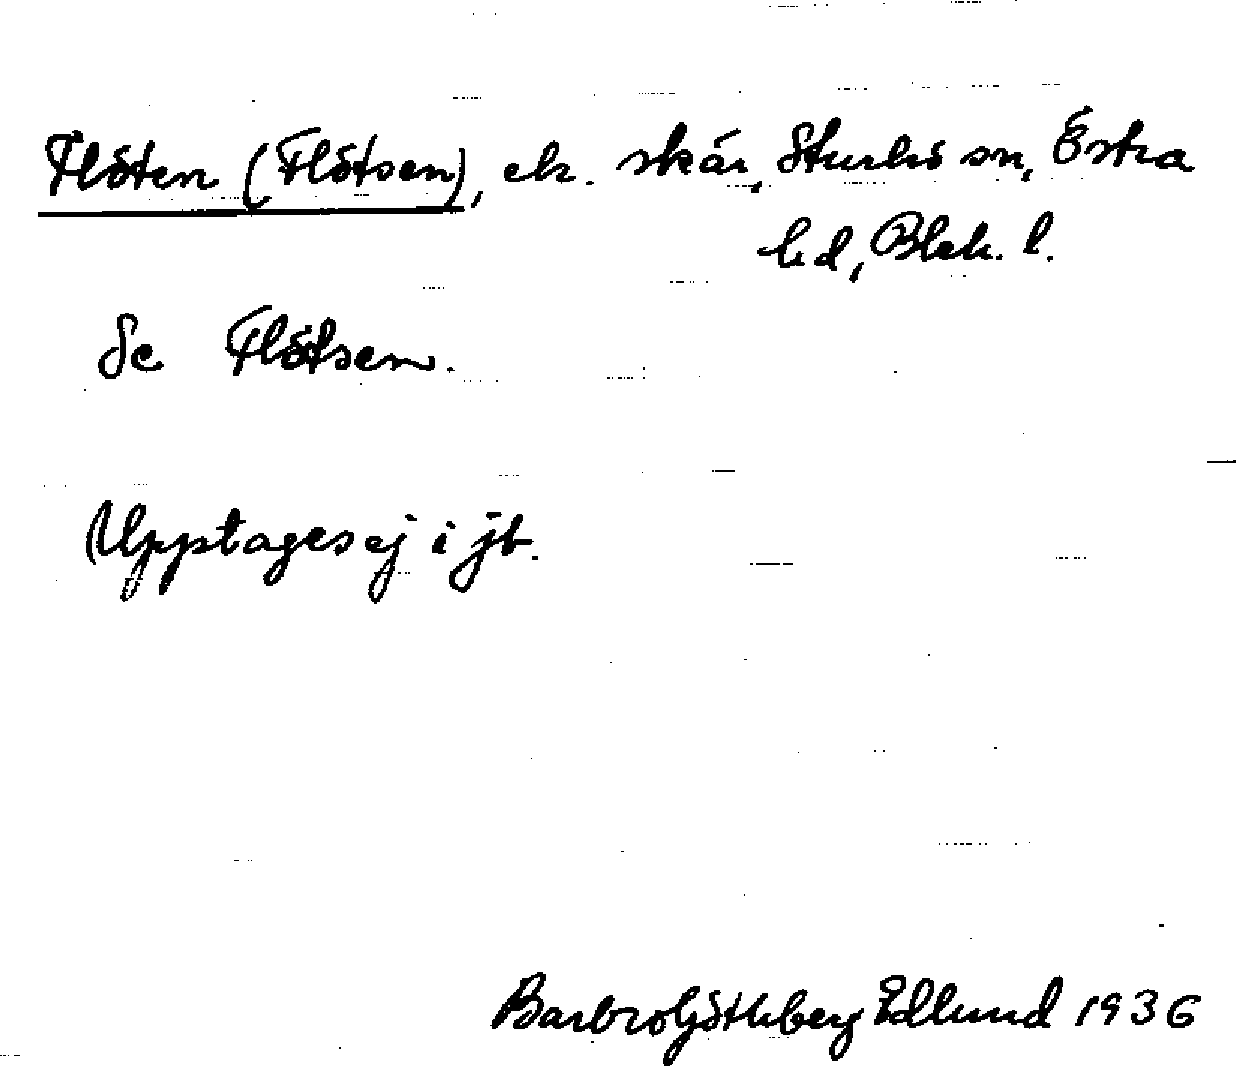 Flöten (Flötsen), ek. skär, Sturkö sn, Östra
hd, Blek. l.
Se Flötsen.
Upptages ej i jb.
Barbro Göthberg Edlund 1936